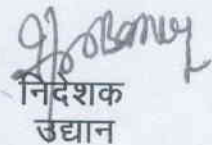 निदेशक
उद्यान